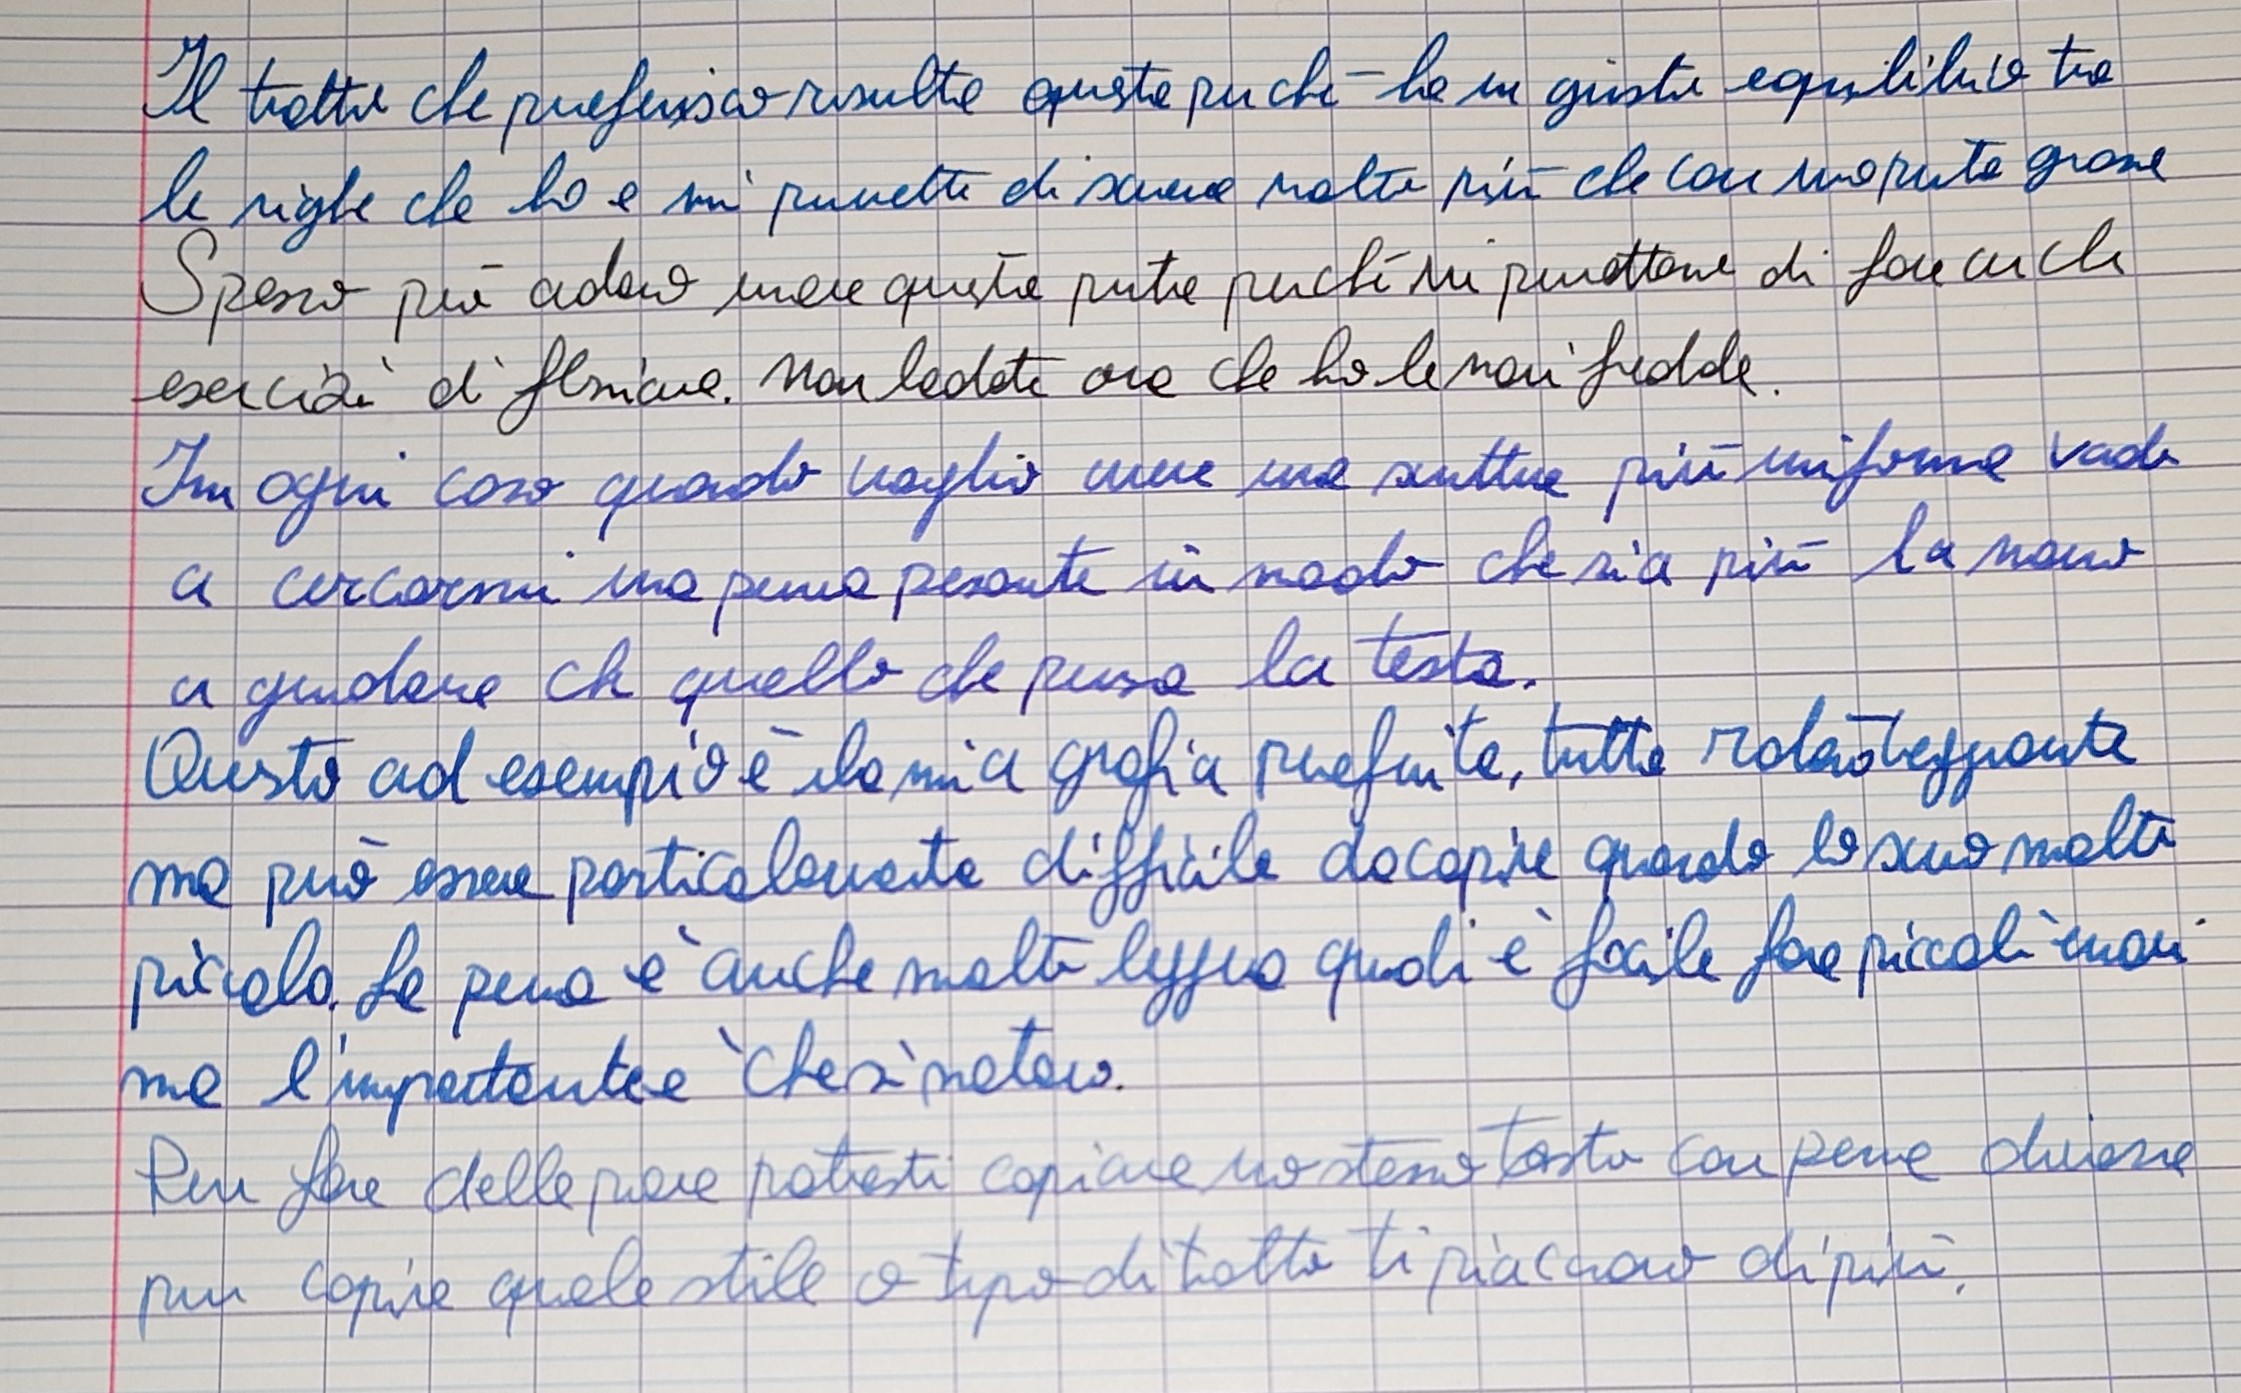 Il tratto che preferisco risulta questo perché ha un giusto equilibrio tra
le righe che ho e mi permette di scrivere molto più che con una punta grossa
Spesso più adoro avere queste punte perché mi permettono di fare anche
esercizi di flessione. Non badate ora che ho le mani fredde.
In ogni caso quando voglio avere una scrittura più uniforme vado
a cercarmi una penna pesante in modo che sia più la mano
a guidare che quello che pensa la testa.
Questo ad esempio è la mia grafia preferita, tutta rotondeggiante
ma può essere particolarmente difficile da capire quando lo scrivo molto
piccolo. La penna è anche molto leggera quindi è facile fare piccoli errori
ma l'importante è che si notano.
Per fare delle prove potresti copiare uno stesso testo con penne diverse
per capire quale stile o tipo di tratto ti piacciono di più.